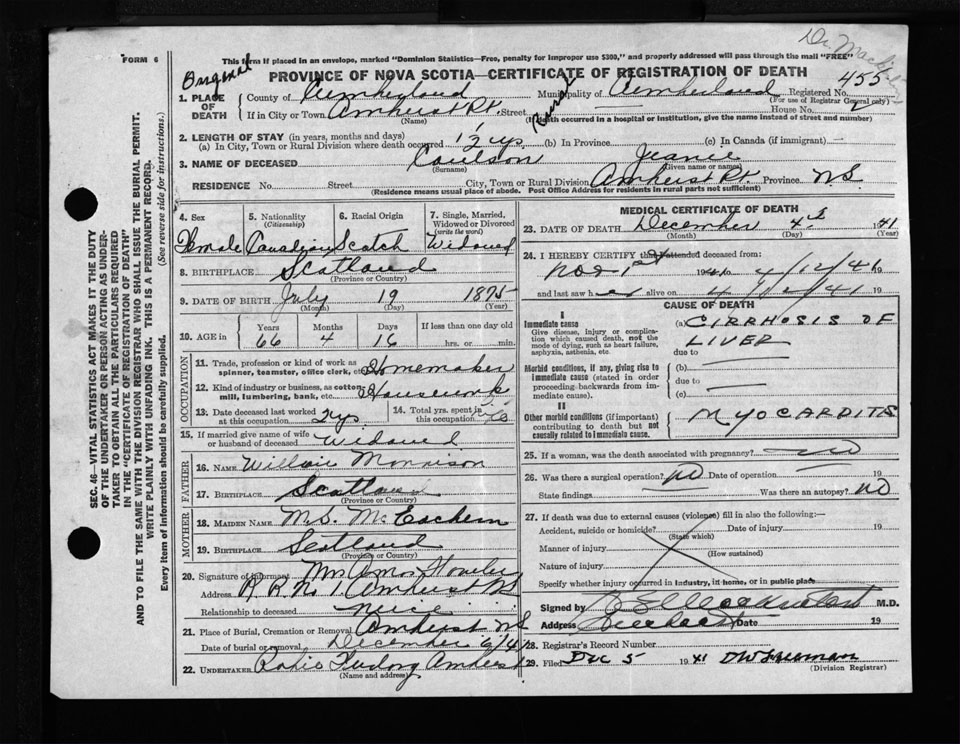 FORM 6
This form if placed in an envelope, marked "Dominion Statistics—Free, penalty for improper use $300," and properly addressed will pass through the mail "FREE"
Original
PROVINCE OF NOVA SCOTIA—CERTIFICATE OF REGISTRATION OF DEATH
455
1. PLACE OF DEATH
County of Cumberland Municipality of Cumberland Registered No.
(For use of Registrar General only)
If in City or Town Amherst Rt. Street Rural — House No.
(Name) (If death occurred in a hospital or institution, give the name instead of street and number)
2. LENGTH OF STAY (in years, months and days)
(a) In City, Town or Rural Division where death occurred 1/2 yrs (b) In Province (c) In Canada (if immigrant) —
3. NAME OF DECEASED Coulson Jeanie
(Surname) (Given name or names)
RESIDENCE No. Street City, Town or Rural Division Amherst Rt. Province N.S
(Residence means usual place of abode. Post Office Address for residents in rural parts not sufficient)
4. Sex Female
5. Nationality (Citizenship) Canadian
6. Racial Origin Scotch
7. Single, Married, Widowed or Divorced (write the word) Widowed
8. BIRTHPLACE Scotland
(Province or Country)
9. DATE OF BIRTH July 19 1875
(Month) (Day) (Year)
10. AGE in Years 66 Months 4 Days 16 If less than one day old hrs. or min.
OCCUPATION
11. Trade, profession or kind of work as spinner, teamster, office clerk, etc. Homemaker
12. Kind of industry or business, as cotton mill, lumbering, bank, etc. Housework
13. Date deceased last worked at this occupation 2 yrs
14. Total yrs. spent in this occupation
15. If married give name of wife or husband of deceased Widowed
FATHER
16. NAME Morrison
17. BIRTHPLACE Scotland
(Province or Country)
MOTHER
18. MAIDEN NAME McEachern
19. BIRTHPLACE Scotland
(Province or Country)
20. Signature of informant Mrs Amos Fowler
R.R. No 1 Amherst NS
Relationship to deceased Neice
21. Place of Burial, Cremation or Removal Amherst NS
Date of burial or removal December 6/41
22. UNDERTAKER Amherst
(Name and address)
MEDICAL CERTIFICATE OF DEATH
23. DATE OF DEATH December 4th 1941
(Month) (Day) (Year)
24. I HEREBY CERTIFY that I attended deceased from:
Nov 1st 1941 to 4/12/41 19
and last saw her alive on 4/12/41 19
CAUSE OF DEATH
I
Immediate cause
Give disease, injury or complication which caused death, not the mode of dying, such as heart failure, asphyxia, asthenia, etc.
(a) CIRRHOSIS OF
LIVER
due to
Morbid conditions, if any, giving rise to immediate cause (stated in order proceeding backwards from immediate cause).
(b) —
due to —
(c)
II
Other morbid conditions (if important) contributing to death but not causally related to immediate cause.
MYOCARDITIS
25. If a woman, was the death associated with pregnancy? no
26. Was there a surgical operation? no Date of operation 19
State findings Was there an autopsy? no
27. If death was due to external causes (violence) fill in also the following:—
Accident, suicide or homicide? Date of injury 19
(State which)
Manner of injury
(How sustained)
Nature of injury
Specify whether injury occurred in industry, in home, or in public place
Signed by M.D.
Address Date 19
28. Registrar's Record Number
29. Filed Dec 5 1941
(Division Registrar)
SEC. 46—VITAL STATISTICS ACT MAKES IT THE DUTY
OF THE UNDERTAKER OR PERSON ACTING AS UNDER-
TAKER TO OBTAIN ALL THE PARTICULARS REQUIRED
IN THE "CERTIFICATE OF REGISTRATION OF DEATH"
AND TO FILE THE SAME WITH THE DIVISION REGISTRAR WHO SHALL ISSUE THE BURIAL PERMIT.
WRITE PLAINLY WITH UNFADING INK. THIS IS A PERMANENT RECORD.
Every item of information should be carefully supplied. (See reverse side for instructions.)